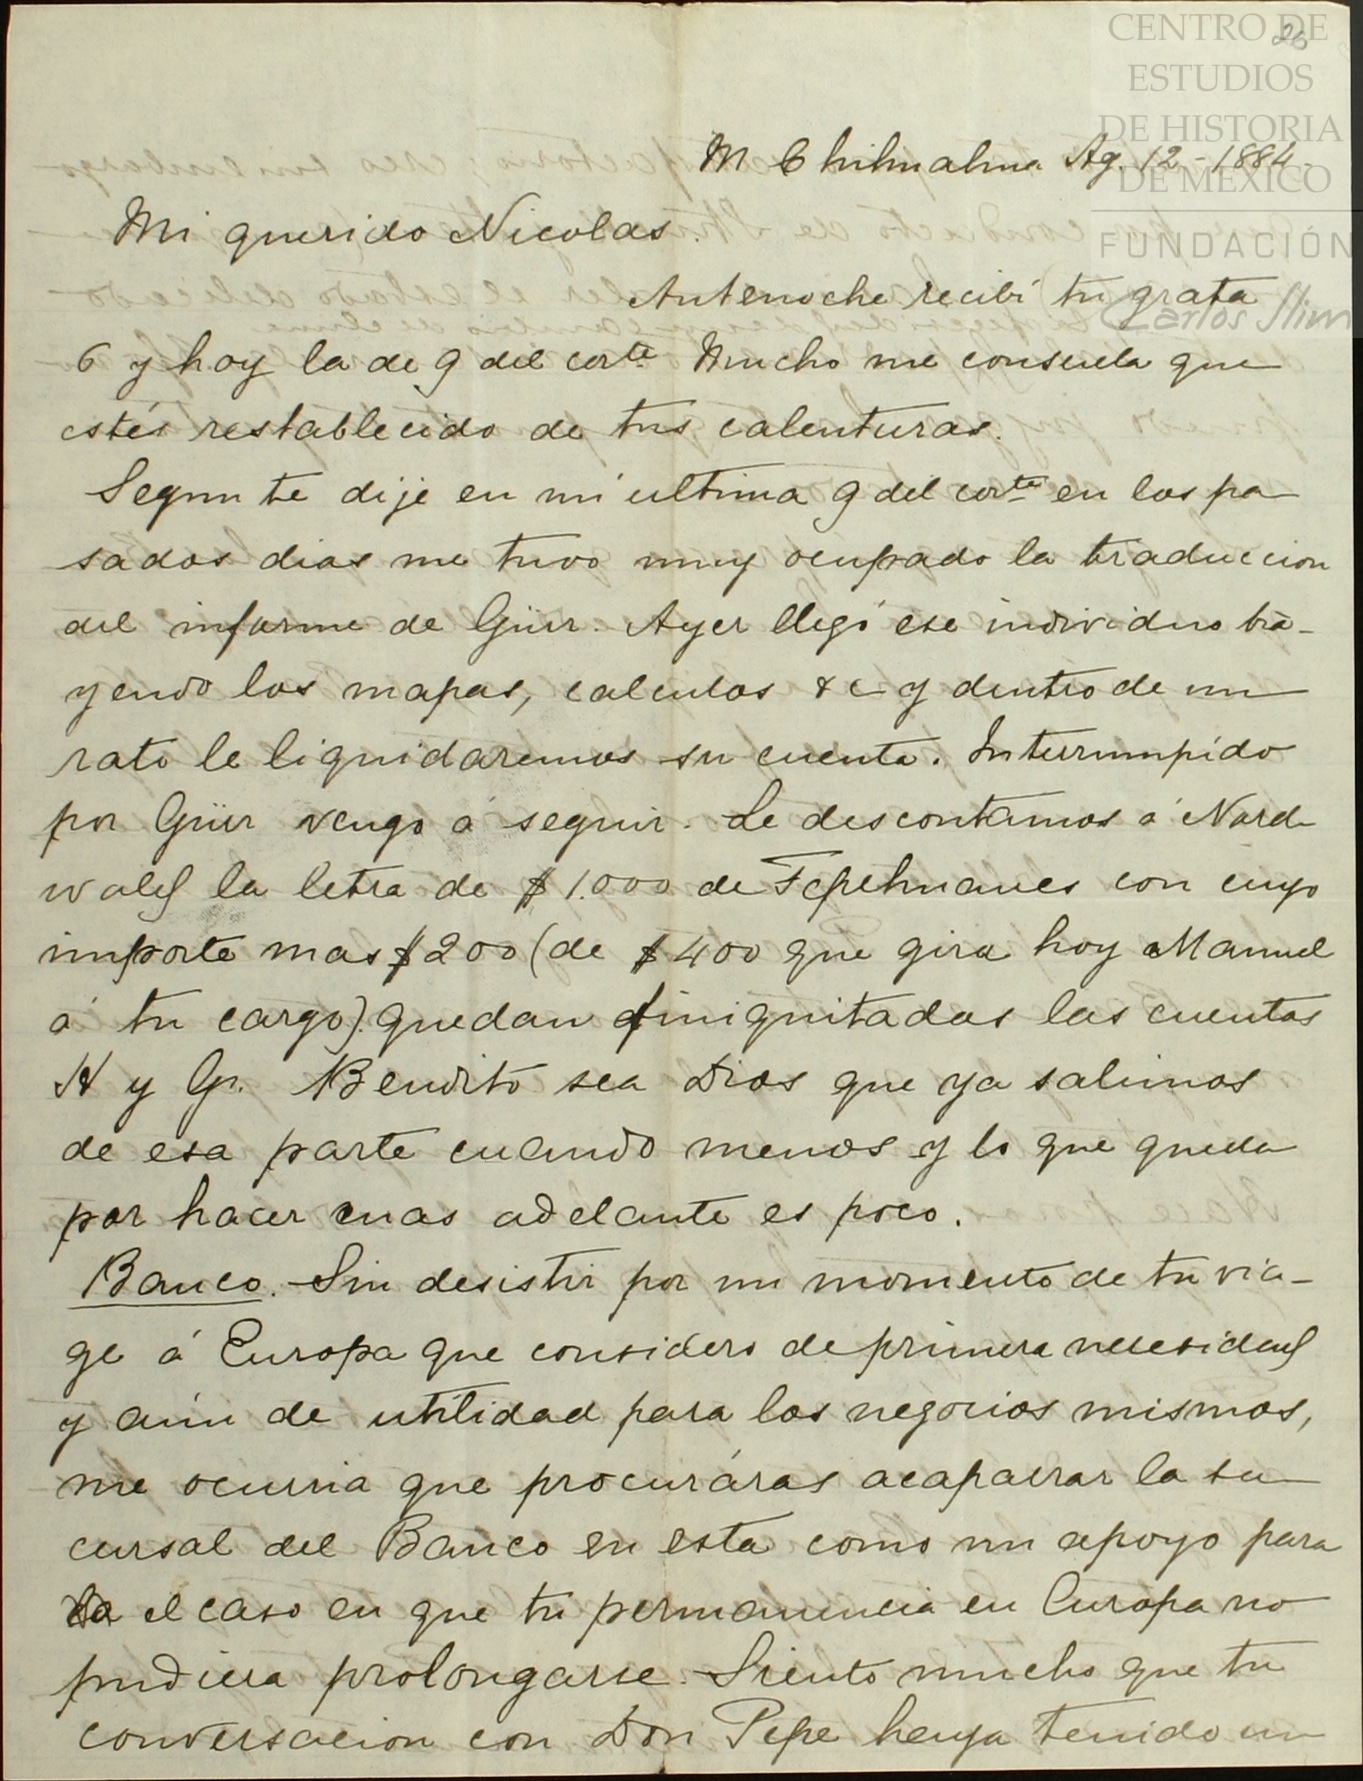 CENTRO DE
ESTUDIOS
DE HISTORIA
DE MÉXICO
FUNDACIÓN
Carlos Slim
26
M Chihuahua Ag. 12-1884.
Mi querido Nicolas.
Antenoche recibí tu grata
6 y hoy la de 9 del corte. Mucho me consuela que
estés restablecido de tus calenturas.
Segun te dije en mi ultima 9 del corte. en los pa
sados dias me tuvo muy ocupado la traduccion
del informe de Gürr. Ayer llegó ese individuo tra-
yendo los mapas, calculos &c y dentro de un
rato le liquidaremos su cuenta. Interrumpido
por Gürr vengo á seguir. Le descontamos á Nord
wald la letra de $1.000 de Tepehuanes con cuyo
importe mas $200 (de $400 que gira hoy Manuel
á tu cargo) quedan finiquitadas las cuentas
H y G. Bendito sea Dios que ya salimos
de esa parte cuando menos y lo que queda
por hacer mas adelante es poco.
Banco. Sin desistir por un momento de tu via-
ge á Europa que considero de primera necesidad
y aún de utilidad para los negocios mismos,
me ocurria que procuráras acaparrar la su
cursal del Banco en esta como un apoyo para
el caso en que tu permanencia en Europa no
pudiera prolongarse. Siento mucho que tu
conversacion con Don Pepe haya tenido un